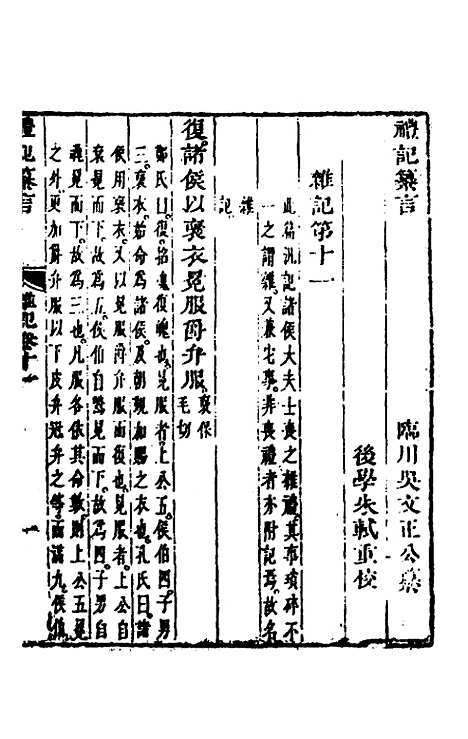 禮記纂言
臨川吳文正公纂
後學朱軾重校
雜記第十一
此篇汎記諸侯大夫士喪之雜禮其事瑣碎不
一之謂雜又兼宅事非喪禮者亦附記焉故名
雜記
復諸侯以褒衣冕服爵弁服褒保毛切
鄭氏曰復招魂復魄也冕服者上公五侯伯四子男
三褒衣始命為諸侯及朝覲加賜之衣也孔氏曰諸
侯用褒衣又以冕服爵弁服而復也冕服者上公自
袞冕而下故為五侯伯自鷩冕而下故為四子男自
毳冕而下故為三也凡服各依其命數則上公五冕
之外更加爵弁服以下皮弁冠弁之等而滿九侯伯
禮記纂言
雜記卷十一
一